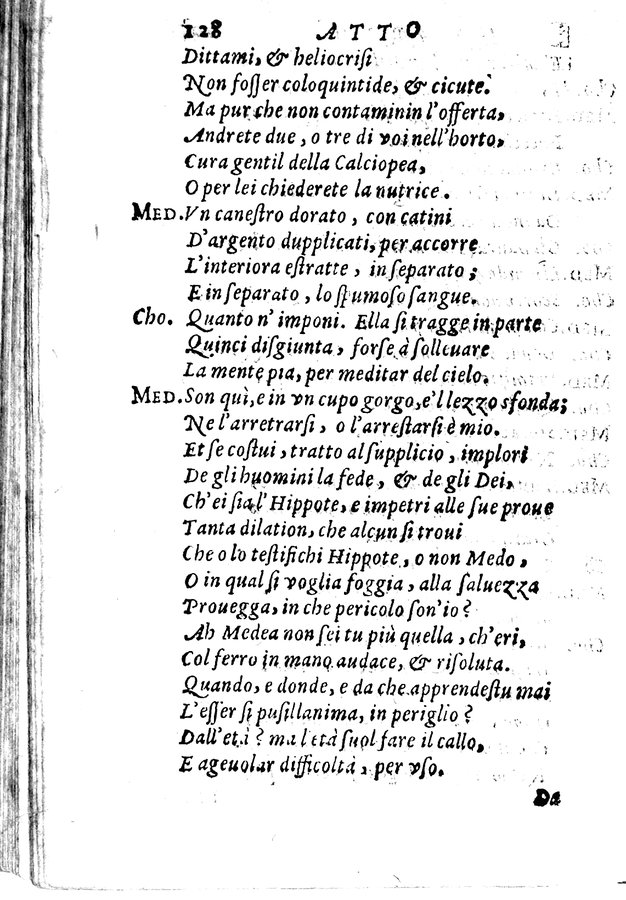 128 ATTO
Dittami, & heliocrisi
Non fosser coloquintide, & cicute.
Ma pur che non contaminin l'offerta,
Andrete due, o tre di voi nell'horto,
Cura gentil della Calciopea,
O per lei chiederete la nutrice.
MED. Vn canestro dorato, con catini
D'argento dupplicati, per accorre
L'interiora estratte, in separato;
E in separato, lo spumoso sangue.
Cho. Quanto n'imponi. Ella si tragge in parte
Quinci disgiunta, forse à solleuare
La mente pia, per meditar del cielo.
MED. Son quì, e in vn cupo gorgo, e'l lezzo sfonda;
Ne l'arretrarsi, o l'arrestarsi è mio.
Et se costui, tratto al supplicio, implori
De gli huomini la fede, & de gli Dei,
Ch'ei sia l'Hippote, e impetri alle sue proue
Tanta dilation, che alcun si troui
Che o lo testifichi Hippote, o non Medo,
O in qual si voglia foggia, alla saluezza
Prouegga, in che pericolo son'io?
Ah Medea non sei tu più quella, ch'eri,
Col ferro in mano audace, & risoluta.
Quando, e donde, e da che apprendestu mai
L'esser sì pusillanima, in periglio?
Dall'età? ma l'età suol fare il callo,
E ageuolar difficoltà, per vso.
Da